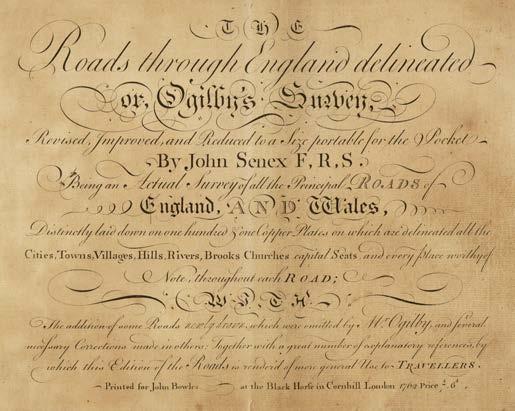 THE
Roads through England delineated
or, Ogilby's Survey,
Revised, Improved, and Reduced to a Size portable for the Pocket
By John Senex F,R,S.
Being an Actual Survey of all the Principal ROADS of
England, AND Wales,
Distinctly laid down on one hundred & one Copper Plates on which are delineated all the
Cities, Towns, Villages, Hills, Rivers, Brooks Churches capital Seats and every place worthy of
Note, throughout each ROAD;
WITH
The addition of some Roads newly drawn, which were omitted by Mr. Ogilby, and several
necessary Corrections made in others: Together with a great number of explanatory references, by
which this Edition of the Roads is render'd of more general Use to TRAVELLERS.
Printed for John Bowles at the Black Horse in Cornhill London 1762 Price 6